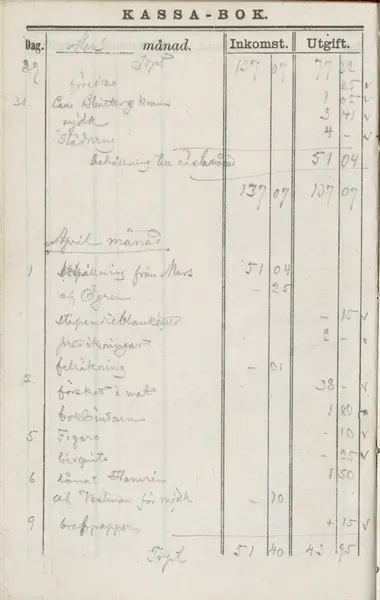 KASSA-BOK.
Dag. Mars månad. Inkomst. Utgift.
29 Trpt 137 07 77 02
föredrag 25 v
31. 1 05 v
mjölk 3 41 v
Städning 4 - v
behållning till nästa månad 51 04
137 07 137 07
April månad
1 Behållning från Mars 51 04
af Ögren - 25
stipendieblanketter - 15 v
predikningar 2 -
felräkning - 01
2. förskott i mat 38 - v
bokbindarn 1 80
5 Figaro - 10 v
- 25 v
6 lånat 1 50
af Vestman för mjölk - 10
9 brefpapper 15 v
Trpt 51 40 43 95